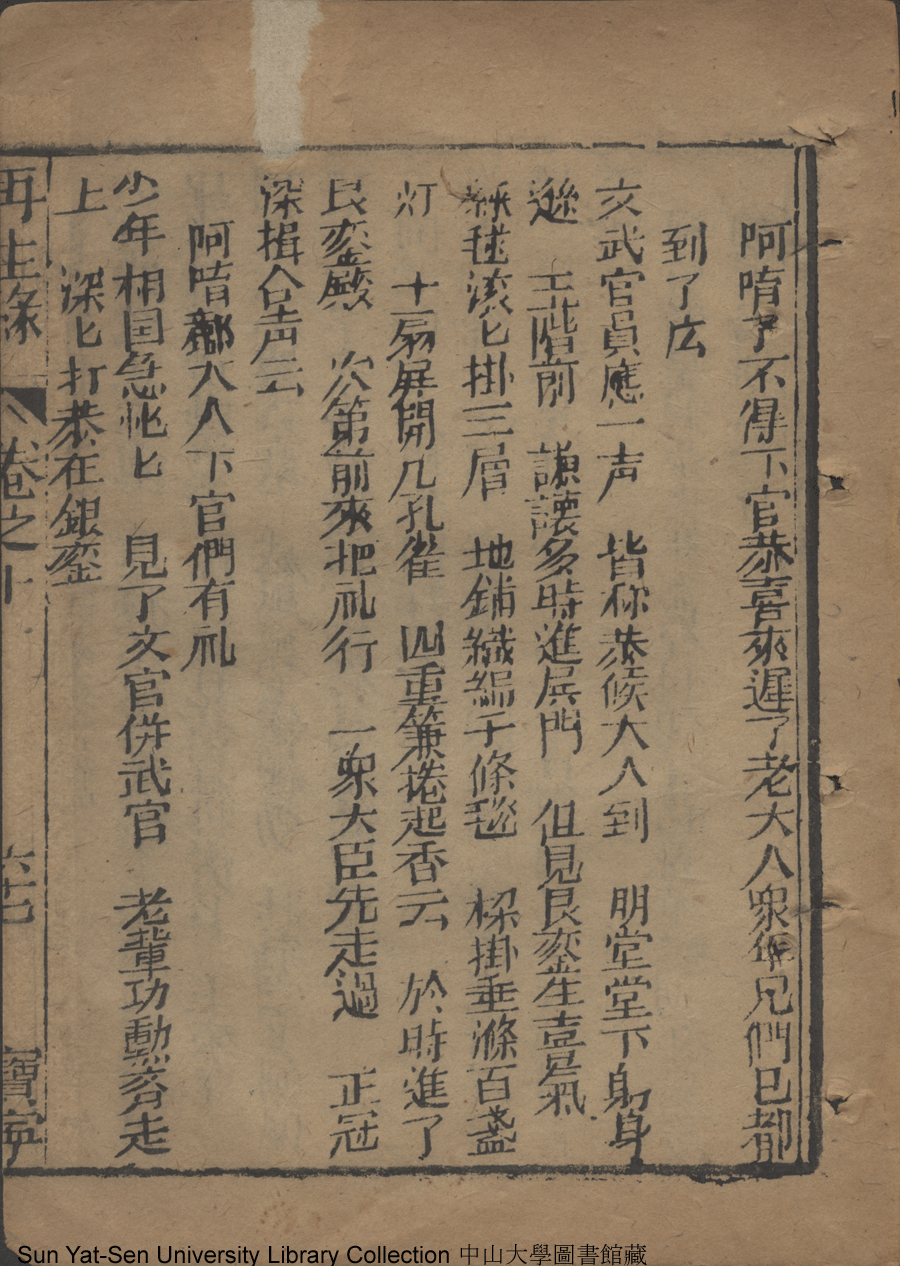 阿唷了不得下官恭喜來遲了老大人眾年兄們已都
到了広
文武官員應一声　皆称恭候大人到　明堂堂下躬身
遜　玉階前　謙讓多時進屏門　但見艮銮生喜氣
綵毬滚匕掛三層　地鋪織綿千條毯　樑掛垂滌百盞
灯　十扇屏開几孔雀　四重簾捲起香云　於時進了
艮銮殿　次第前來把礼行　一眾大臣先走過　正冠
深揖合声云
阿唷鄺大人下官們有礼
少年相国急忙匕　見了文官併武官　老輩功勳齐走
上　深匕打恭在銀銮
再生緣　卷之十　寶寧
Sun Yat-Sen University Library Collection 中山大學圖書館藏